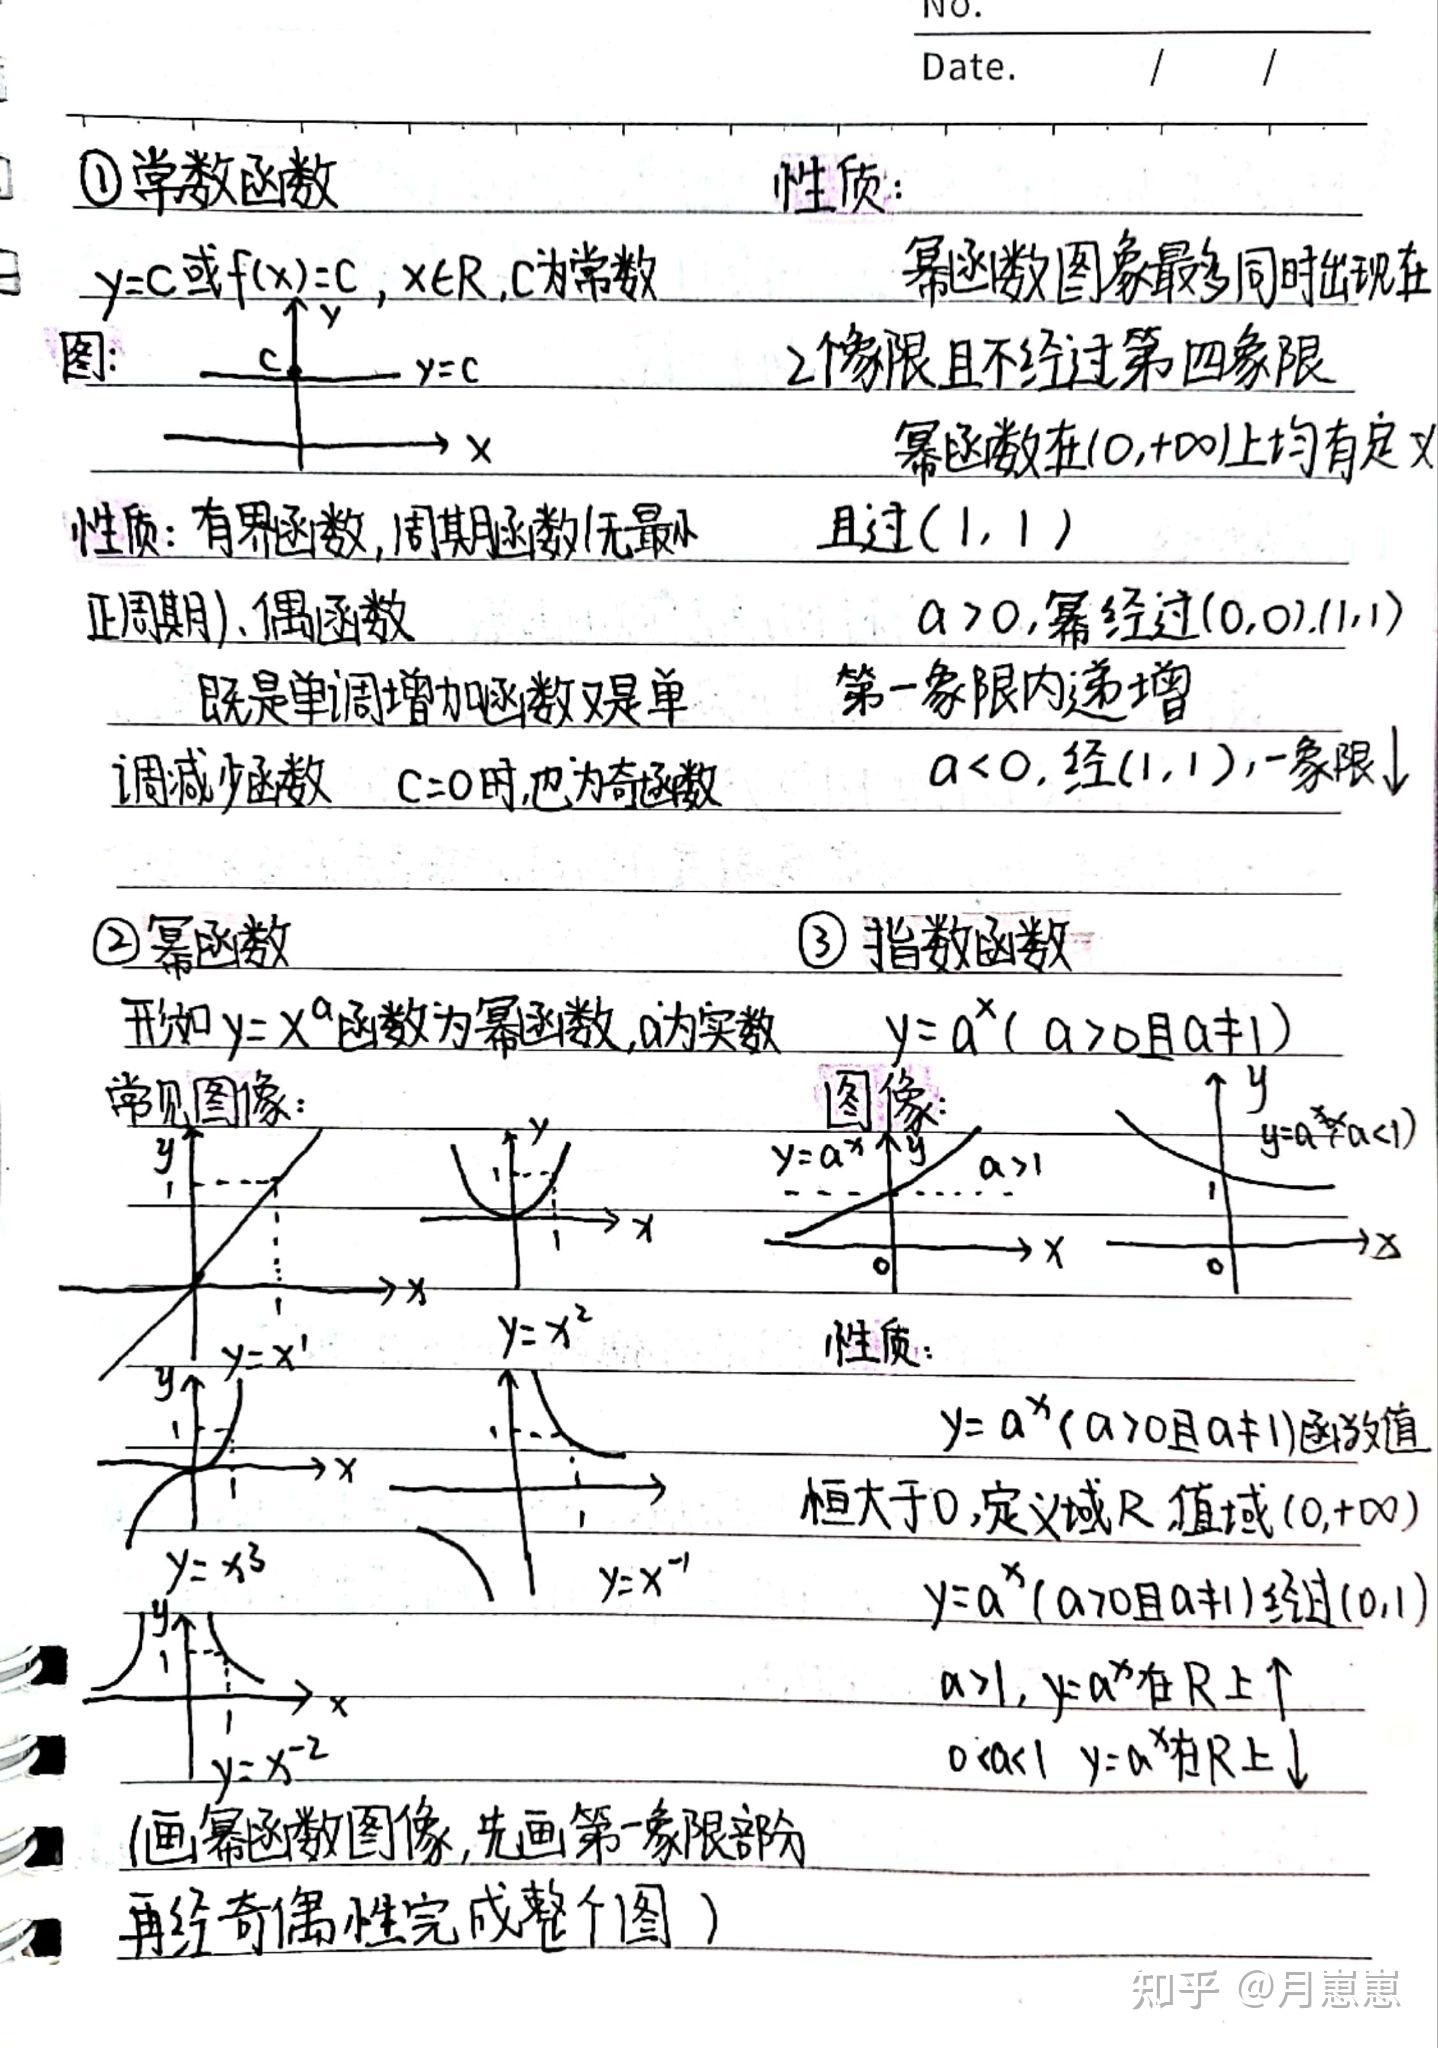 No.
Date. / /
①常数函数
y=C或f(x)=C,x∈R,C为常数
图:
y
C
y=C
x
性质:有界函数,周期函数(无最小
正周期)、偶函数
既是单调增加函数又是单
调减少函数 C=0时,也为奇函数
②幂函数
形如y=x^a函数为幂函数,a为实数
常见图像:
y
1
x
1
y=x^1
y
1
x
1
y=x^2
y
1
x
1
y=x^3
1
1
y=x^-1
y
1
x
1
y=x^-2
(画幂函数图像,先画第一象限部分
再经奇偶性完成整个图)
性质:
幂函数图象最多同时出现在
2个象限且不经过第四象限
幂函数在(0,+∞)上均有定义
且过(1,1)
a>0,幂经过(0,0).(1,1)
第一象限内递增
a<0,经(1,1),一象限↓
③指数函数
y=a^x(a>0且a≠1)
图像:
y=a^x
y
a>1
x
0
y
a<1)
1
x
0
性质:
y=a^x(a>0且a≠1)函数值
恒大于0,定义域R,值域(0,+∞)
y=a^x(a>0且a≠1)经过(0,1)
a>1,y=a^x在R上↑
0<a<1 y=a^x在R上↓
知乎 @月崽崽